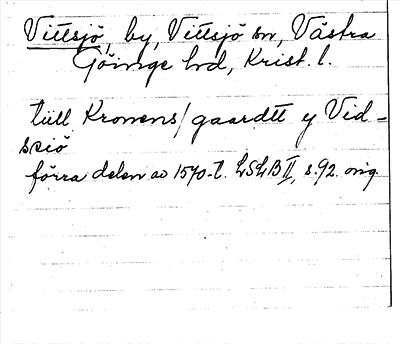 Vittsjö, by, Vittsjö sn, Västra
Göinge hd, Krist. l.
tiill Kronens/gaardtt y Vid-
sxiö
förra delen av 1570-t. LSLB II, s. 92. orig